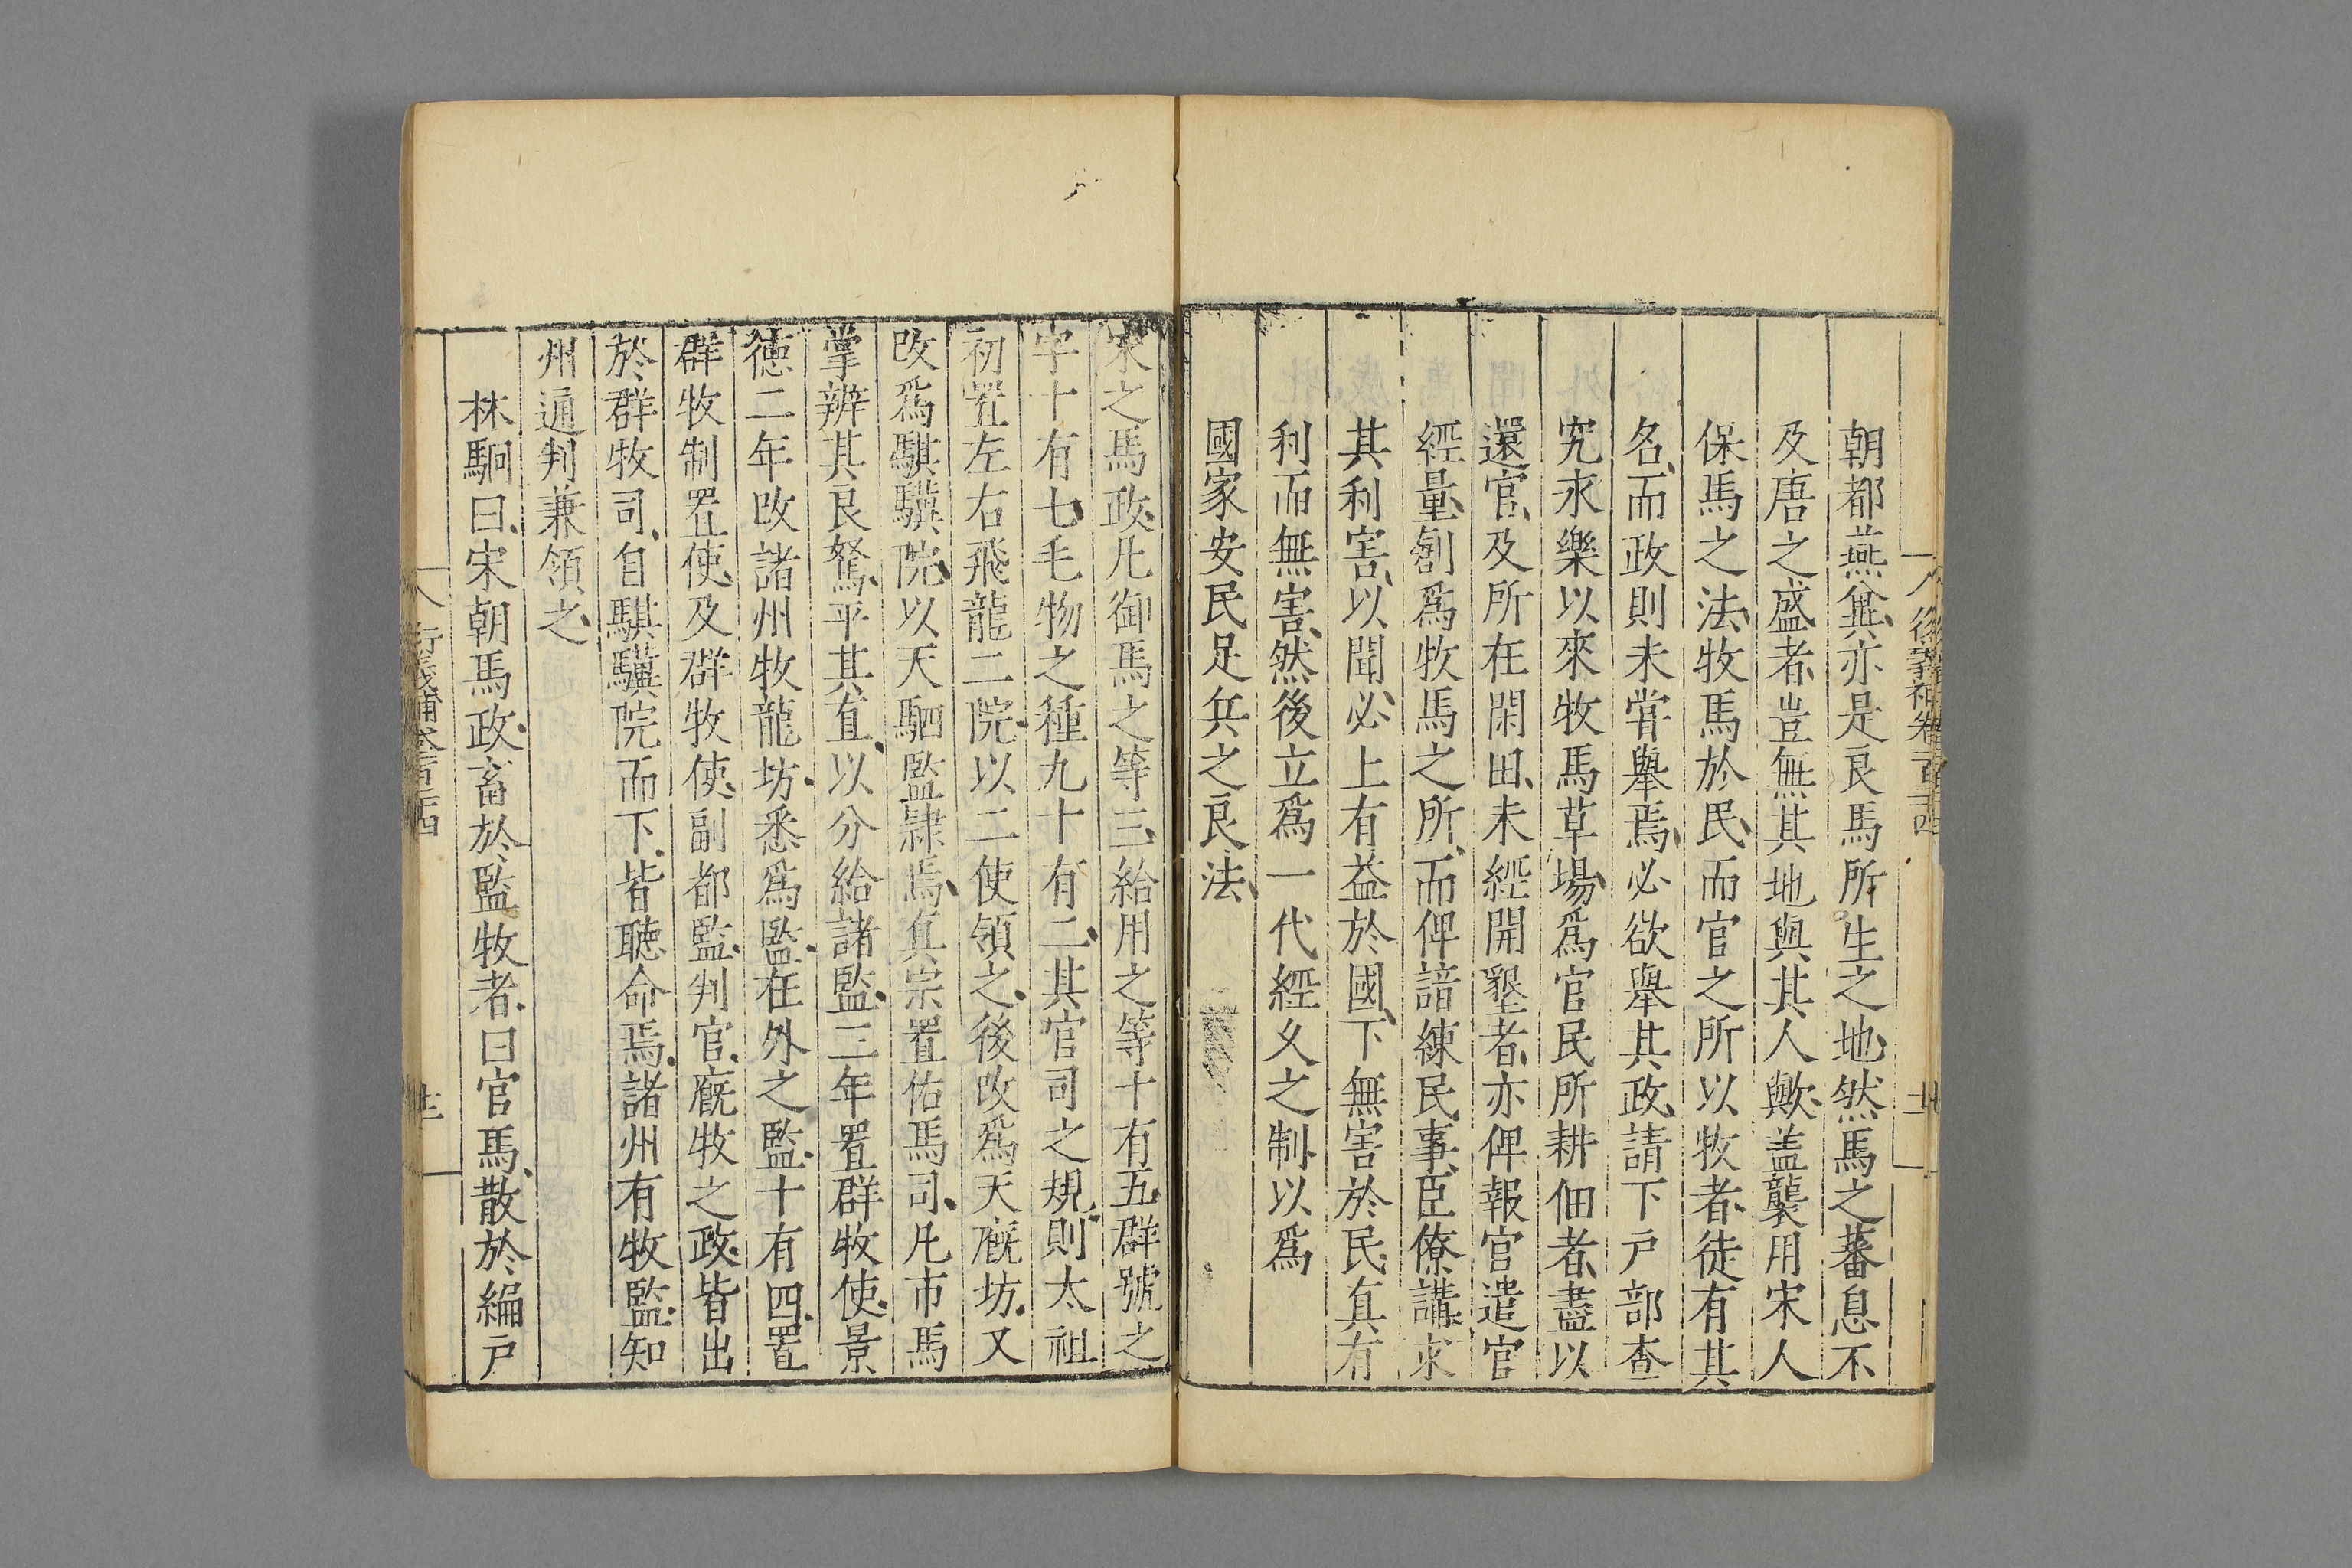 朝都燕兾亦是良馬所生之地然馬之蕃息不
及唐之盛者豈無其地與其人歟盖襲用宋人
保馬之法牧馬於民而官之所以牧者徒有其
名而政則未嘗舉焉必欲舉其政請下戶部查
究永樂以來牧馬草場爲官民所耕佃者盡以
還官及所在閑田未經開墾者亦俾報官遣官
經量創爲牧馬之所而俾諳練民事臣僚講求
其利害以聞必上有益於國下無害於民眞有
利而無害然後立爲一代經乆之制以爲
國家安民足兵之良法
宋之馬政凡御馬之等三給用之等十有五群號之
字十有七毛物之種九十有二其官司之規則太祖
初置左右飛龍二院以二使領之後改爲天廐坊又
改爲騏驥院以天駟監隷焉眞宗置估馬司凡市馬
掌辨其良駑平其直以分給諸監三年置群牧使景
德二年改諸州牧龍坊悉爲監在外之監十有四置
群牧制置使及群牧使副都監判官廐牧之政皆出
於群牧司自騏驥院而下皆聽命焉諸州有牧監知
州通判兼領之
林駉曰宋朝馬政畜於監牧者曰官馬散於編戶
衍義補卷百二十四